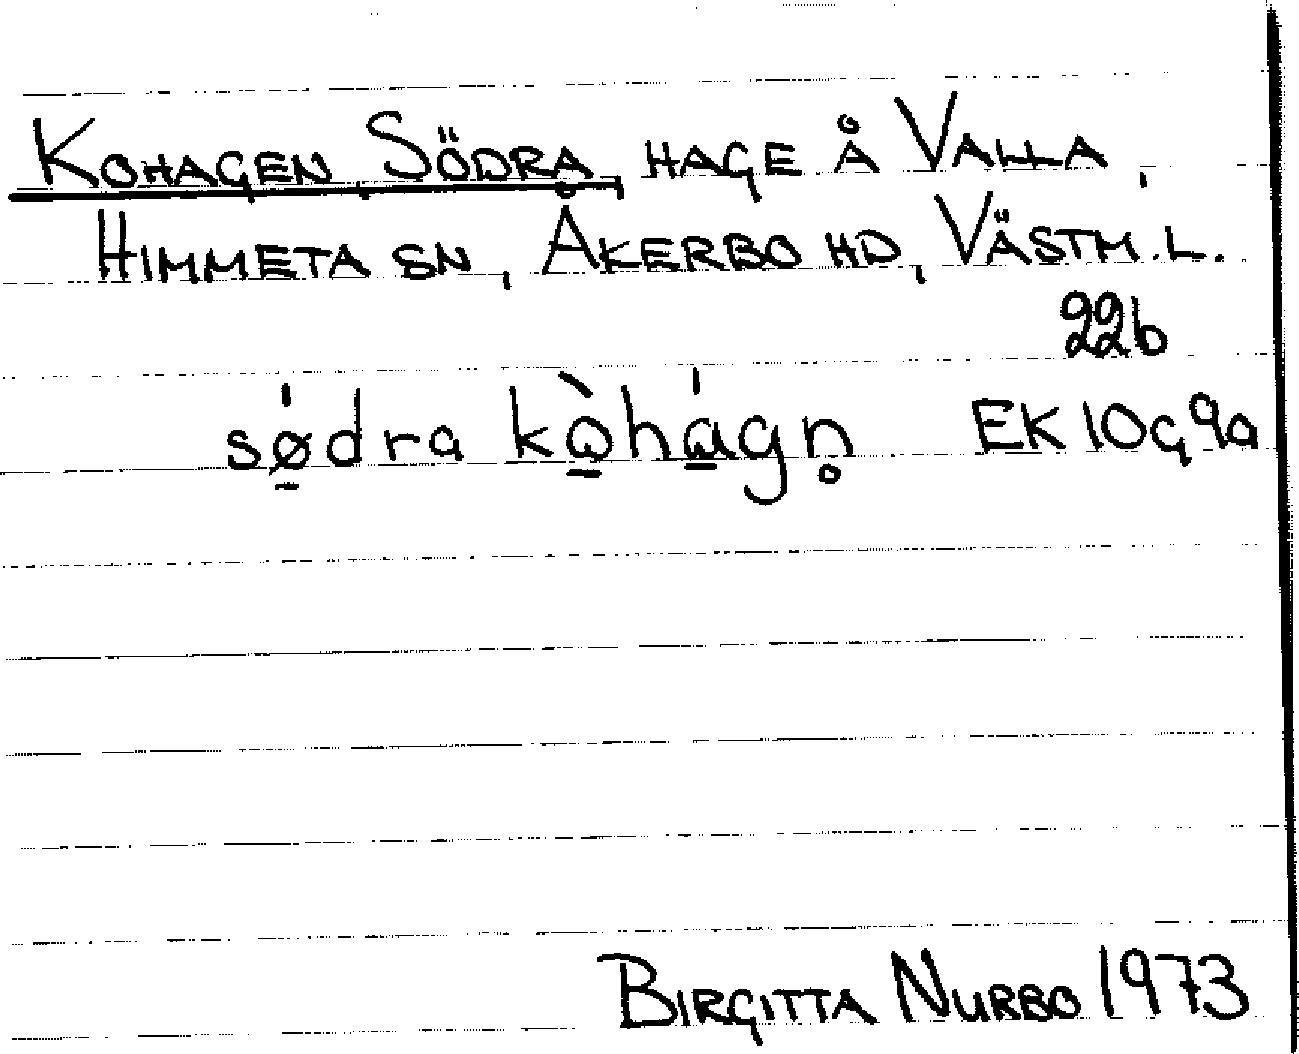 KOHAGEN, SÖDRA, HAGE Å VALLA,
HIMMETA SN, ÅKERBO HD, VÄSTM.L.
22b
sǿ̱dra kò̱há̱gn̥ EK 10G9a
BIRGITTA NURBO 1973